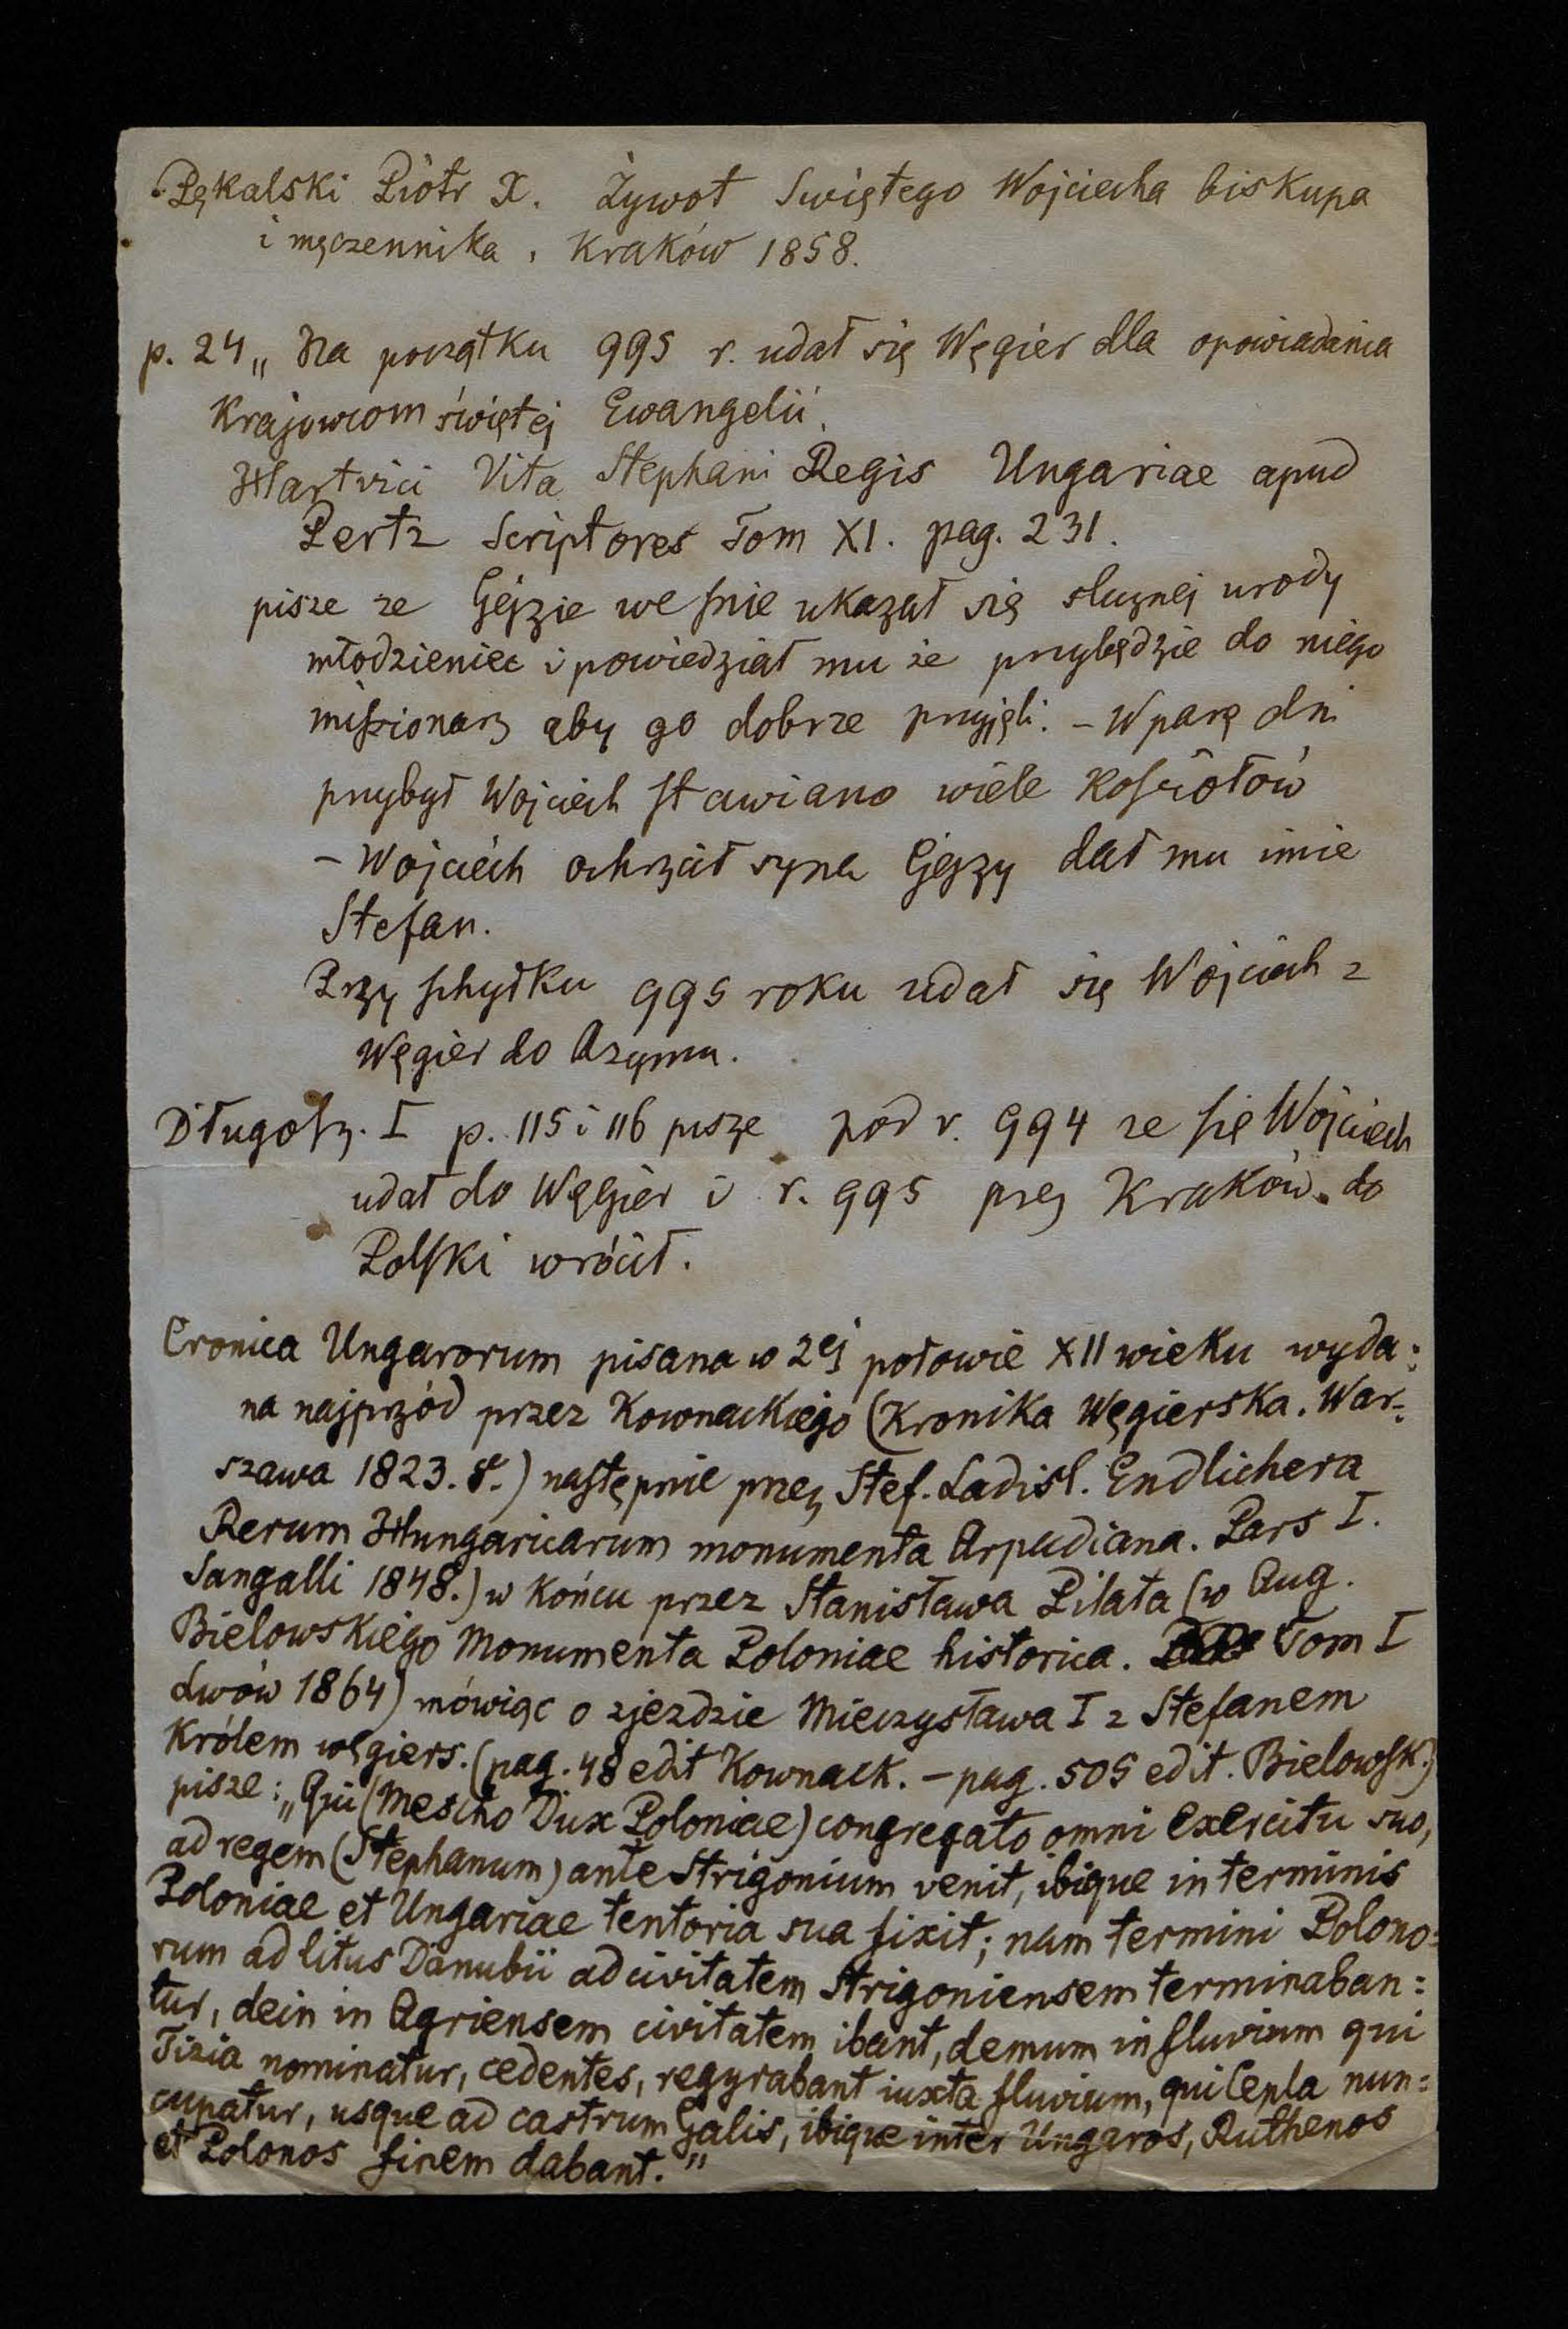 Pękalski Piotr X. Żywot Swiętego Wojciecha biskupa
i męczennika, Kraków 1858.
p. 24 „ Na początku 995 r. udał się Węgier dla opowiadania
Krajowcom świętej Ewangelii.
Hartvici Vita Stephani Regis Ungariae apud
Pertz Scriptores Tom XI. pag. 231.
pisze że Gejzie we snie ukazał się slicznej urody
młodzieniec i powiedział mu że przybędzie do niego
missionarz aby go dobrze przyjęli. – W parę dni
przybył Wojciech stawiano wiele Kosciołów
– Wojciech ochrzcił syna Gejzy dał mu imie
Stefan.
Przy schyłku 995 roku udał się Wojciech z
Węgier do Rzymu.
Długosz. I p. 115 i 116 pisze pod r. 994 ze się Wojciech
udał do Węgier i r. 995 przez Kraków do
Polski wrócił.
Cronica Ungarorum pisana w 2ej połowie XII wieku wyda:
na najprzód przez Kownackiego (Kronika Węgierska. War:
szawa 1823. 8.) następnie przez Stef. Ladisl. Endlichera
Rerum Hungaricarum monumenta Arpadiana. Pars I.
Sangalli 1848.) w końcu przez Stanisława Pilata (w Aug.
Bielowskiego Monumenta Poloniae historica. Tom I
Lwów 1864) mówiąc o zjezdzie Mieczysława I z Stefanem
Królem węgiers. (pag. 48 edit Kownack. – pag. 505 edit. Bielowsk.)
pisze: „Qui (Mescho Dux Poloniae) congregato omni exercitu suo,
ad regem (Stephanum) ante Strigonium venit, ibique in terminis
Poloniae et Ungariae tentoria sua fixit; nam termini Polono:
rum ad litus Danubii ad civitatem Strigoniensem terminaban:
tur, dein in Agriensem civitatem ibant, demum in fluvium qui
Tizia nominatur, cedentes, regyrabant iuxta fluvium, qui Cepla nun:
cupatur, usque ad castrum Galis, ibique inter Ungaros, Ruthenos
et Polonos finem dabant."